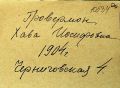 Проверман
Хава Иосифовна
1904г.
Черниговская 4.